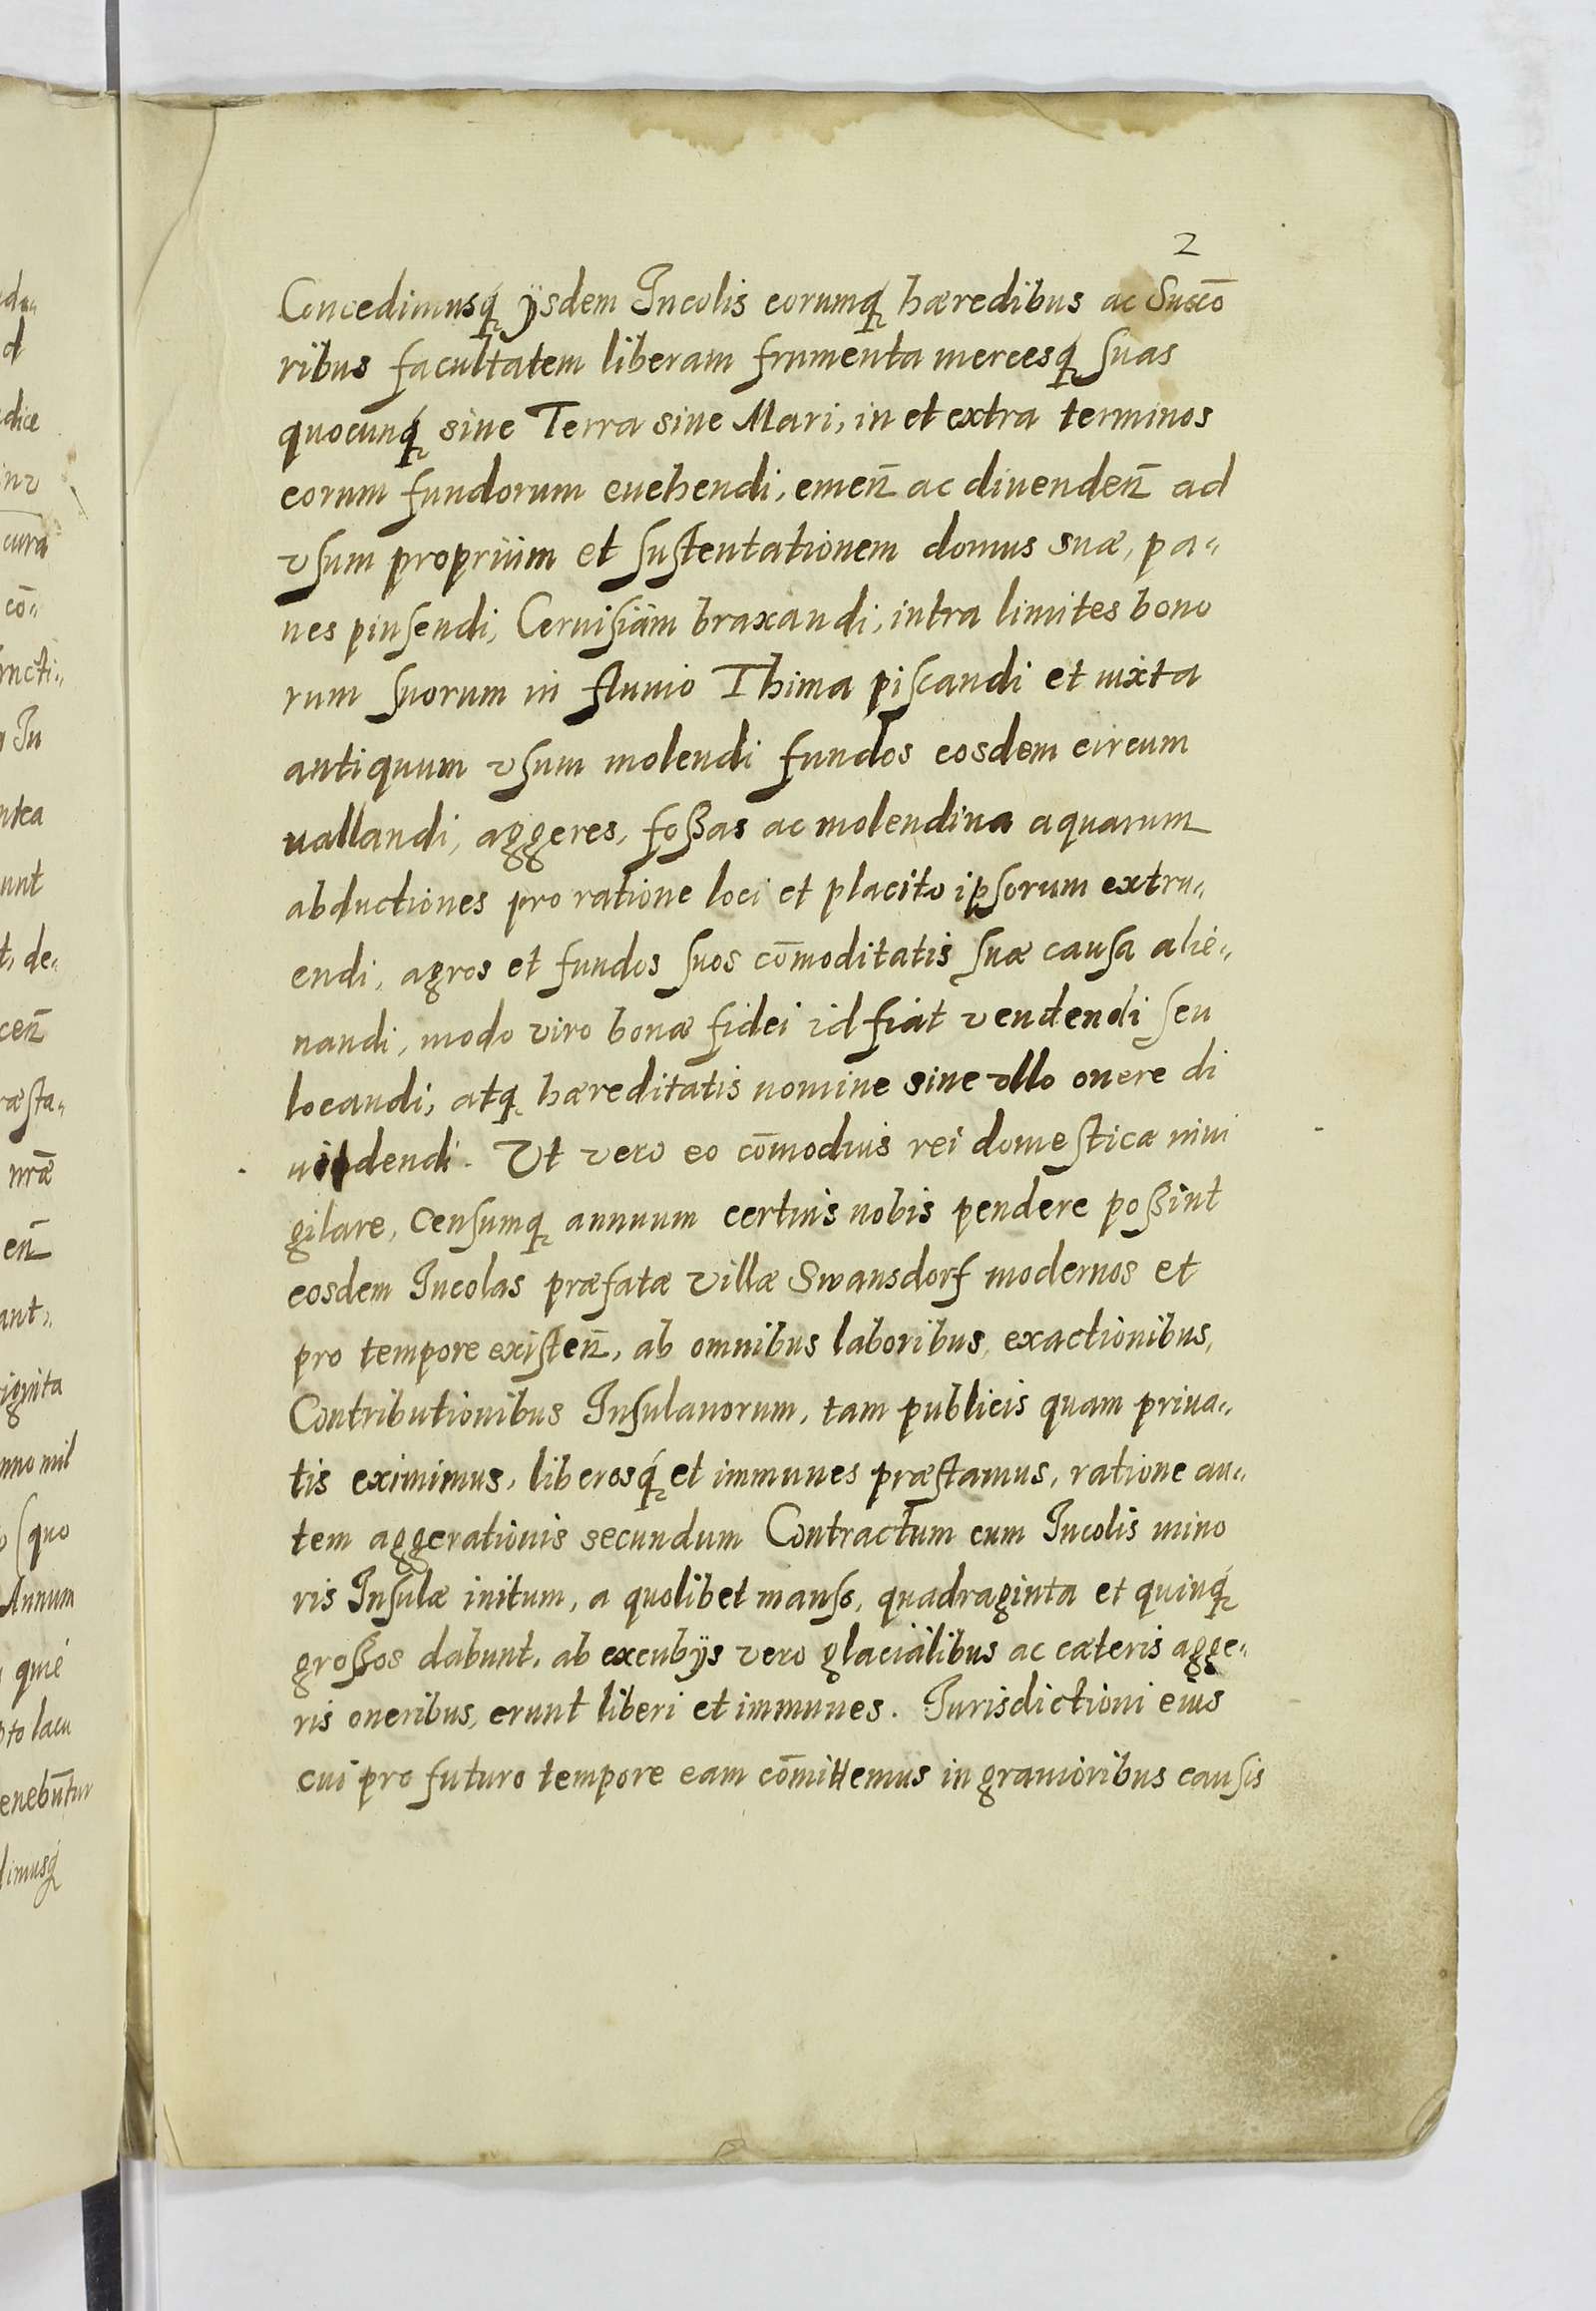 2
Concedimusq́ ÿsdem Incolis eorumq́ hæredibus ac Suscō
ribus facultatem liberam frumenta mercesq́ suas
quocunq́ siue Terra siue Mari, in et extra terminos
eorum fundorum euehendi, emen̄ ac diuenden̄ ad
vsum proprium et sustentationem domus suæ, pa„
nes pinsendi, Ceruisiam braxandi, intra limites bono
rum suorum in fluuio Thima piscandi et iuxta
antiquum vsum molendi fundos eosdem circum
uallandi, aggeres, foßas ac molendina aquarum
abductiones pro ratione loci et placito ipsorum extru„
endi, agros et fundos suos com̄oditatis suæ causa alie„
nandi, modo viro bonæ fidei id fiat vendendi seu
locandi, atq hæreditatis nomine sine vllo onere di
uidendi. Vt vero eo com̄odius rei domesticæ inui
gilare, Censumq annuum certius nobis pendere poßint
eosdem Incolas præfatæ villæ Swansdorf modernos et
pro tempore existen̄, ab omnibus laboribus, exactionibus,
Contributionibus Insulanorum, tam publicis quam priua„
tis eximimus, liberosq́ et immunes præstamus, ratione au„
tem aggerationis secundum Contractum cum Incolis mino
ris Insulæ initum, a quolibet manso, quadraginta et quinq́
großos dabunt, ab excubÿs vero glacialibus ac cæteris agge„
ris oneribus, erunt liberi et immunes. Iurisdictioni eius
cui pro futuro tempore eam com̄ittemus in grauioribus causis